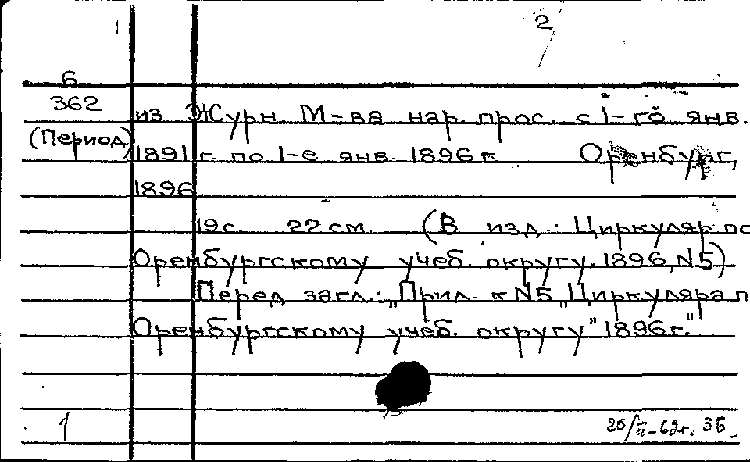 1 2
6
362 из Журн. М-ва нар. прос. с 1-го янв.
(Период) 1891 г. по 1-е янв. 1896 г. Оренбург,
1896
19 с. 22 см. (В изд.: Циркуляр по
Оренбургскому учеб. округу. 1896, N5)
Перед загл.: "Прил. к N5 "Циркуляра п
Оренбургскому учеб. округу" 1896 г."
1